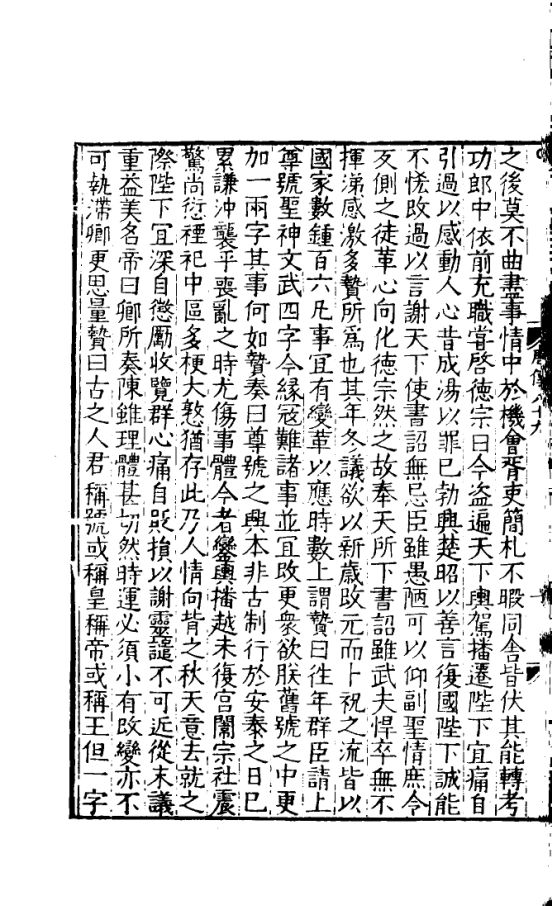 之後莫不曲盡事情中於機會胥吏簡札不暇同舍皆伏其能轉考
功郎中依前充職嘗啓德宗曰今盗遍天下輿駕播遷陛下宜痛自
引過以感動人心昔成湯以罪已勃興楚昭以善言復國陛下誠能
不恡改過以言謝天下使書詔無忌臣雖愚陋可以仰副聖情庶令
反側之徒革心向化德宗然之故奉天所下書詔雖武夫悍卒無不
揮涕感激多贄所爲也其年冬議欲以新歲改元而卜祝之流皆以
國家數鍾百六凡事宜有變革以應時數上謂贄曰徃年群臣請上
尊號聖神文武四字今緣寇難諸事並宜改更衆欲朕舊號之中更
加一兩字其事何如贄奏曰尊號之興本非古制行於安泰之日已
累謙沖襲乎喪亂之時尤傷事體今者鑾輿播越未復宮闈宗社震
驚尚愆禋祀中區多梗大憝猶存此乃人情向背之秋天意去就之
際陛下宜深自懲勵收覽群心痛自貶損以謝靈譴不可近從末議
重益美名帝曰卿所奏陳雖理體甚切然時運必須小有改變亦不
可執滯卿更思量贄曰古之人君稱號或稱皇稱帝或稱王但一字